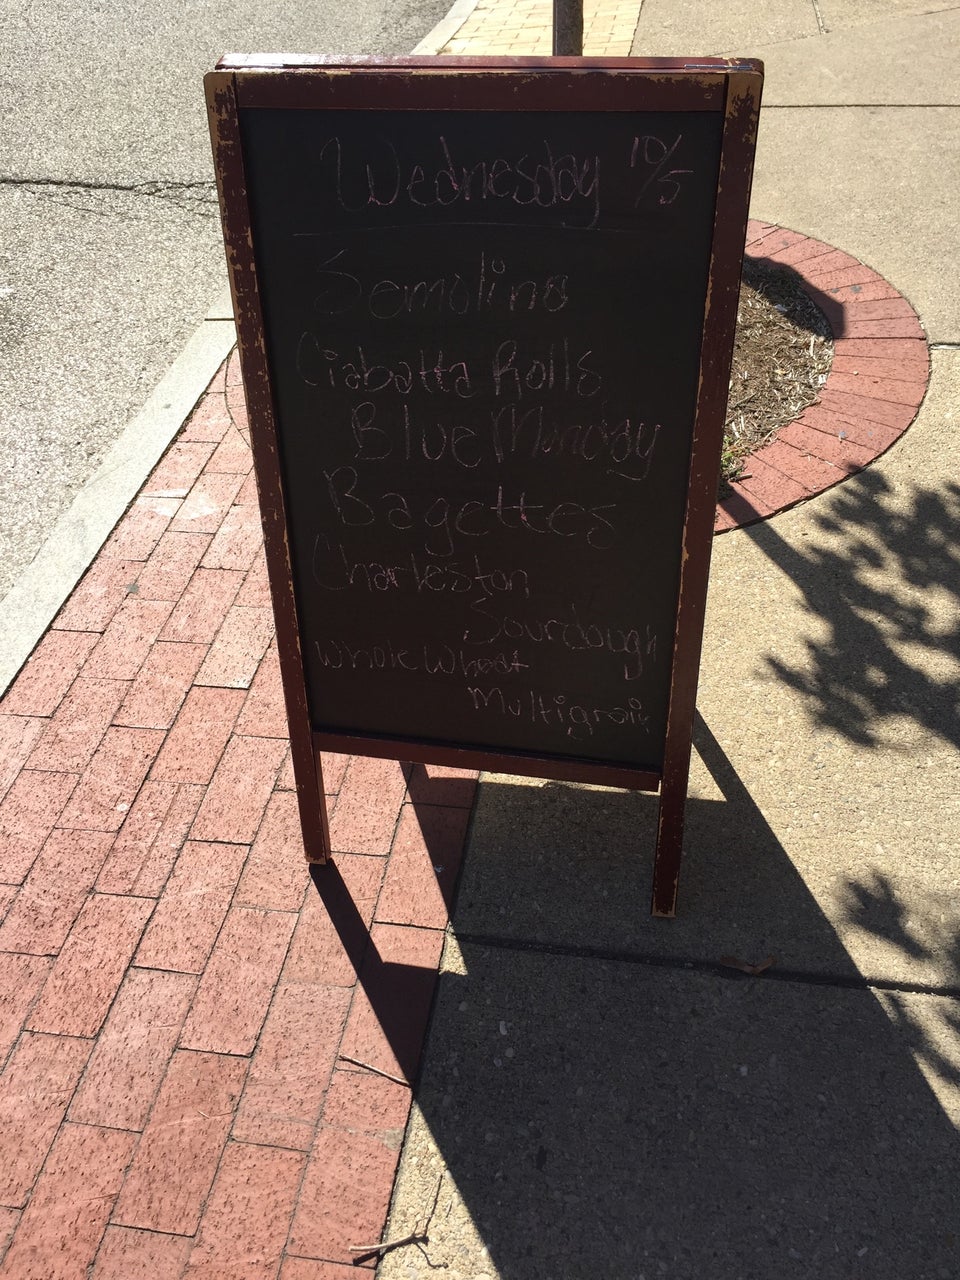 Wednesday 10/5
Semolina
Ciabatta Rolls
Blue Monday
Bagettes
Charleston
Sourdough
Whole Wheat
Multigrain